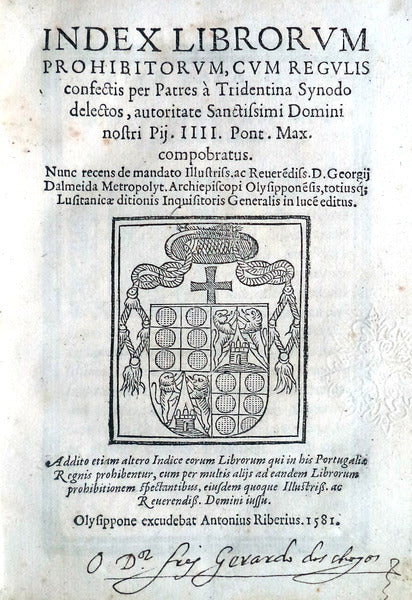 INDEX LIBRORVM
PROHIBITORVM, CVM REGVLIS
confectis per Patres à Tridentina Synodo
delectos, autoritate Sanctissimi Domini
nostri Pij. IIII. Pont. Max.
compobratus.
Nunc recens de mandato Illustriss. ac Reuerēdiss. D. Georgij
Dalmeida Metropolyt. Archiepiscopi Olysipponēsis, totiusq;
Lusitanicæ ditionis Inquisitoris Generalis in lucē editus.
Addito etiam altero Indice eorum Librorum qui in his Portugaliæ
Regnis prohibentur, cum permultis alijs ad eandem Librorum
prohibitionem spectantibus, eiusdem quoque Illustriß. ac
Reuerendiß. Domini iussu.
Olysippone excudebat Antonius Riberius. 1581.
O D.or frej Gerardo das chagas